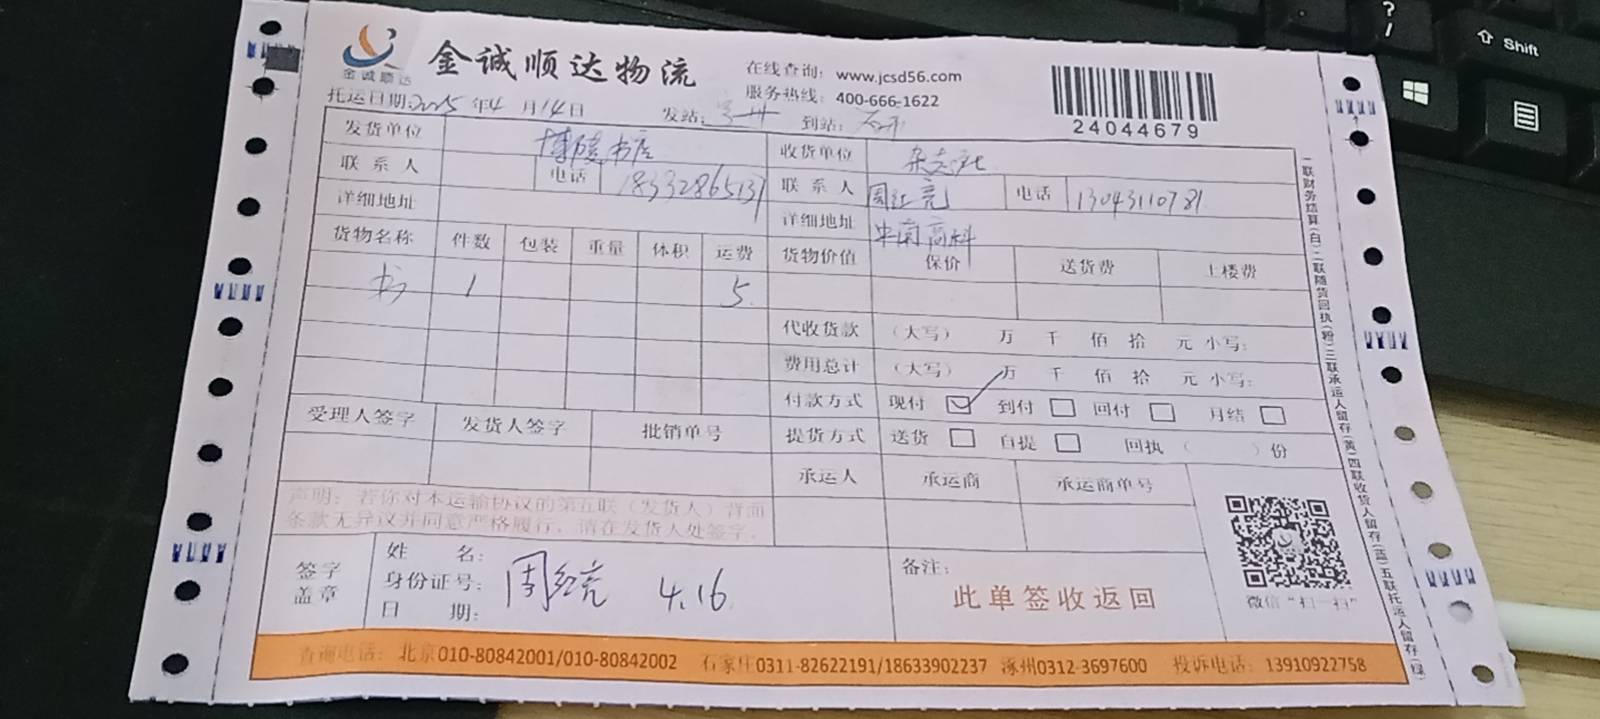 金诚顺达
金诚顺达物流
在线查询: www.jcsd56.com
服务热线: 400-666-1622
24044679
托运日期: 2025 年 4 月 14 日 发站: 到站:
发货单位 博陵书店 收货单位 杂志社
联系人 电话 18332865137 联系人 周红亮 电话 13043110781
详细地址 详细地址 中南高科
货物名称 件数 包装 重量 体积 运费 货物价值 保价 送货费 上楼费
书 1 5
代收货款 (大写) 万 千 佰 拾 元 小写:
费用总计 (大写) 万 千 佰 拾 元 小写:
付款方式 现付 到付 回付 月结
提货方式 送货 自提 回执 ( ) 份
受理人签字 发货人签字 批销单号
承运人 承运商 承运商单号
声明: 若你对本运输协议的第五联(发货人)背面
条款无异议并同意严格履行, 请在发货人处签字.
签字
盖章
姓 名:
身份证号:
日 期:
周红亮 4.16
备注:
此单签收返回
微信"扫一扫"
查询电话: 北京010-80842001/010-80842002 石家庄0311-82622191/18633902237 涿州0312-3697600 投诉电话: 13910922758
一联财务结算(白)二联随货回执(粉)三联承运人留存(黄)四联收货人留存(蓝)五联托运人留存(绿)
?
/
⇧ Shift